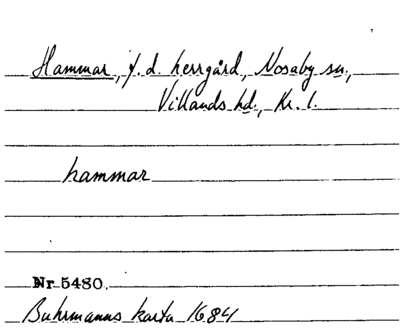 Hammar, f. d. herrgård, Nosaby sn.,
Villands hd., Kr. l.
hammar
Nr 5480.
Buhrmanns karta 1684